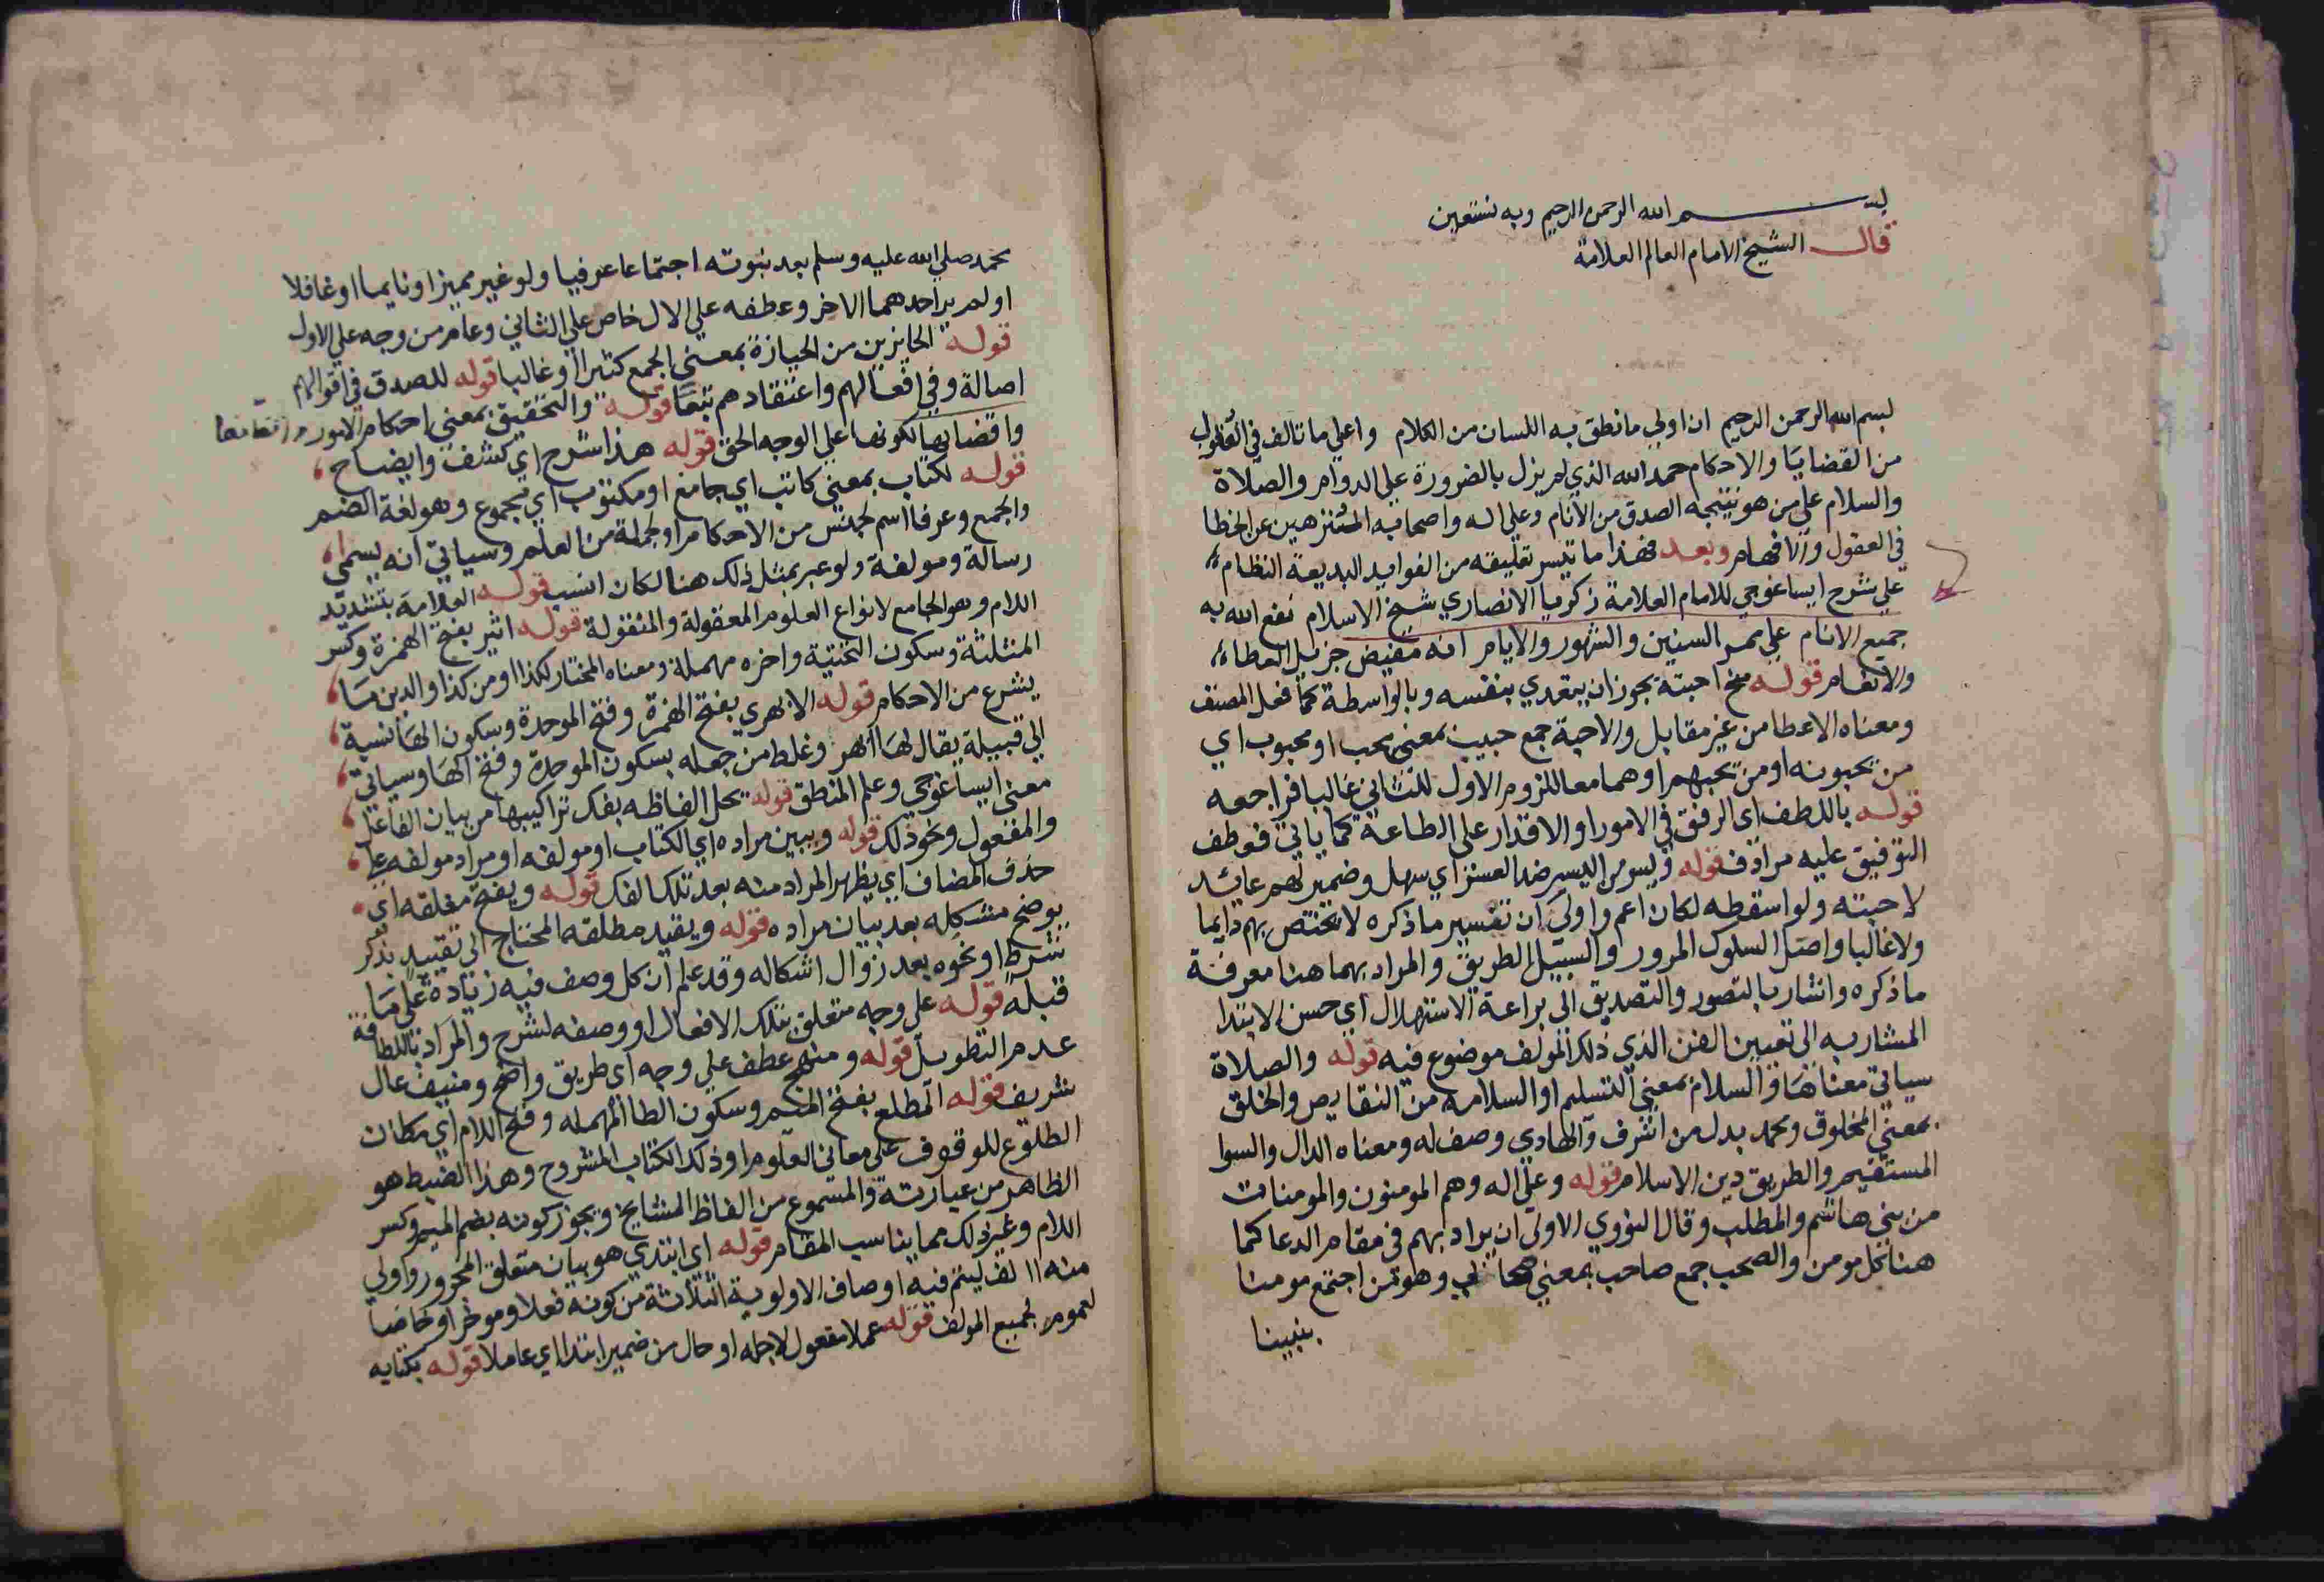 بسم الله الرحمن الرحيم وبه نستعين
قال الشيخ الامام العالم العلامة
بسم الله الرحمن الرحيم ان اولي ما نطق به اللسان من الكلام واعلي ما تالف في العقول
من القضايا والاحكام حمد الله الذي لم يزل بالضرورة علي الدوام والصلاة
والسلام علي من هو نتيجة الصدق من الانام وعلي اله واصحابه المتنزهين عن الخطا
في العقول والافهام وبعد فهذا ما تيسر تعليقه من الفوايد البديعة النظام
علي شرح ايساغوجي للامام العلامة زكريا الانصاري شيخ الاسلام نفع الله به
جميع الانام علي ممر السنين والشهور والايام انه مفيض جزيل العطاء
والانعام قوله منح احبته يجوز ان يتعدي بنفسه وبالواسطة كما فعل المصنف
ومعناه الاعطا من غير مقابل والاحبة جمع حبيب بمعني محب او محبوب اي
من يحبونه او من يحبهم او هما معا للزوم الاول للثاني غالبا فراجعه
قوله باللطف اي الرفق في الامور او الاقدار علي الطاعة كما ياتي فعطف
التوفيق عليه مرادف قوله ويسر من اليسر ضد العسر اي سهل وضمير لهم عائد
لاحبته ولو اسقطه لكان اعم واولي ان تفسير ما ذكره لا يختص بهم دايما
ولا غالبا واصل السلوك المرور والسبيل الطريق والمراد بهما هنا معرفة
ما ذكره واشار بالتصور والتصديق الي براعة الاستهلال اي حسن الابتدا
المشار به الي تعيين الفن الذي ذلك المولف موضوع فيه قوله والصلاة
سياتي معناها والسلام بمعني التسليم او السلامه من النقايص والخلق
بمعني المخلوق ومحمد بدل من اشرف والهادي وصف له ومعناه الدال والسوا
المستقيم والطريق دين الاسلام قوله وعلي اله وهم المومنون والمومنات
من بني هاشم والمطلب وقال النووي الاولي ان يراد بهم في مقام الدعا كما
هنا كل مومن والصحب جمع صاحب بمعني صحابي وهو من اجتمع مومنا
بنبينا
محمد صلي الله عليه وسلم بعد نبوته اجتماعا عرفيا ولو غير مميز او نايما او غافلا
او لم ير احدهما الاخر وعطفه علي الال خاص علي الثاني وعام من وجه علي الاول
قوله الحايزين من الحيازة بمعني الجمع كثيرا او غالبا قوله للصدق في اقوالهم
اصالة وفي افعالهم واعتقادهم تبعا قوله والتحقيق بمعني احكام الامور
واقضايها لكونها علي الوجه الحق قوله هذا شرح اي كشف وايضاح
قوله لكتاب بمعني كاتب اي جامع او مكتوب اي مجموع وهو لغة الضم
والجمع وعرفا اسم لجنس من الاحكام او لجملة من العلم وسياتي انه يسمي
رسالة ومولفة ولو عبر بمثل ذلك هنا لكان انسب قوله العلامة بتشديد
اللام وهو الجامع لانواع العلوم المعقولة والمنقولة قوله اثير بفتح الهمزة وكسر
المثلثة وسكون التحتية واخره مهملة ومعناه المختار لكذا او من كذا والدين ما
يشرع من الاحكام قوله الابهري بفتح الهمزة وفتح الموحدة وسكون الها نسبة
الي قبيلة يقال لها ابهر وغلط من جعله بسكون الموحدة وفتح الها وسياتي
معني ايساغوجي وعلم المنطق قوله يحل الفاظه بفك تراكيبها من بيان الفاعل
والمفعول ونحو ذلك قوله ويبين مراده اي الكتاب او مولفه او مراد مولفه علي
حذف المضاف اي يظهر المراد منه بعد تلك الفك قوله ويفتح مغلقه اي
يوضح مشكله بعد بيان مراده قوله ويقيد مطلقه المحتاج الي تقييد بذكر
شرط او نحوه بعد زوال اشكاله وقد علم ان كل وصف فيه زيادة علي ما
قبله قوله علي وجه متعلق بتلك الافعال او وصفه لشرح والمراد باللطافة
عدم التطويل قوله ومنهج عطف علي وجه اي طريق واضح ومنيف عال
شريف قوله المطلع بفتح الميم وسكون الطا المهمله وفتح اللام اي مكان
الطلوع للوقوف علي معاني العلوم او ذلك الكتاب المشروح وهذا الضبط هو
الظاهر من عبارته والمسموع من الفاظ المشايخ ويجوز كونه بضم الميم وكسر
اللام وغير ذلك مما يناسب المقام قوله اي ابتدي هو بيان متعلق المجرور واولي
منه االف ليتم فيه اوصاف الاولوية الثلاثة من كونه فعلا وموخرا وخاصا
لعموم لجميع المولف قوله عملا مفعول لاجله او حال من ضمير ابتدا اي عاملا قوله بكتابه